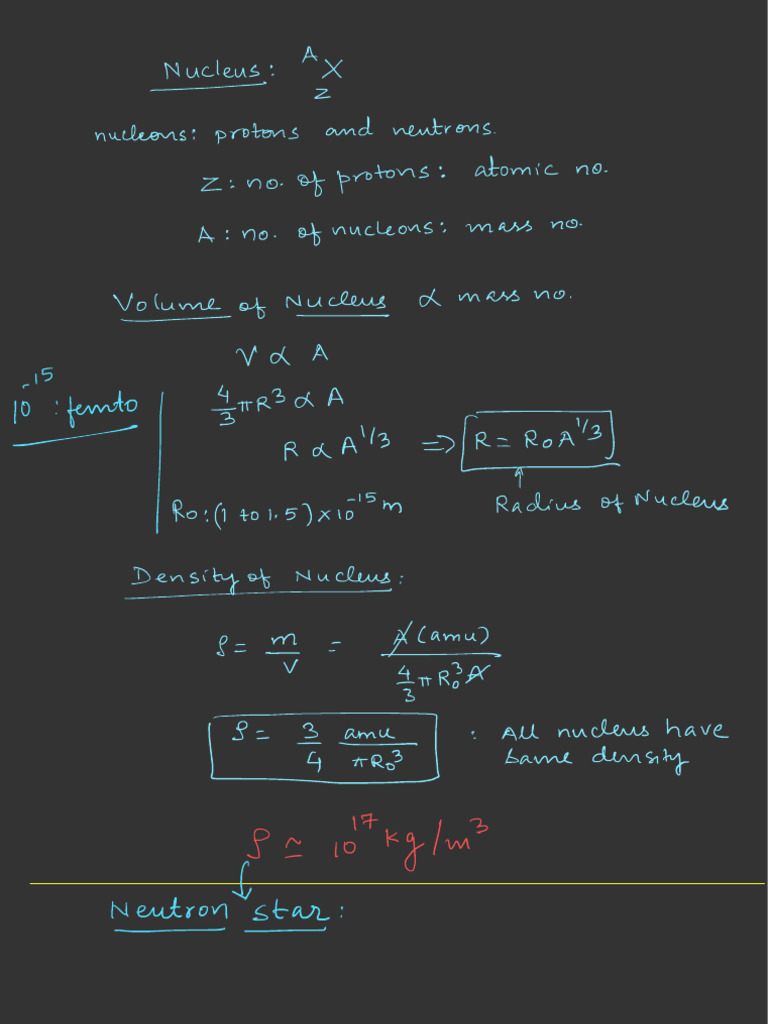 Nucleus: ᴬX
Z
nucleons: protons and neutrons.
Z: no. of protons: atomic no.
A: no. of nucleons: mass no.
Volume of Nucleus ∝ mass no.
V ∝ A
10⁻¹⁵: femto
4/3 πR³ ∝ A
R ∝ A^1/3 => R = R₀A^1/3
R₀: (1 to 1.5) × 10⁻¹⁵ m
Radius of Nucleus
Density of Nucleus:
ρ = m/V = A(amu) / 4/3 πR₀³A
ρ = 3/4 amu/πR₀³ : All nucleus have
same density
ρ ≃ 10¹⁷ kg/m³
Neutron star: